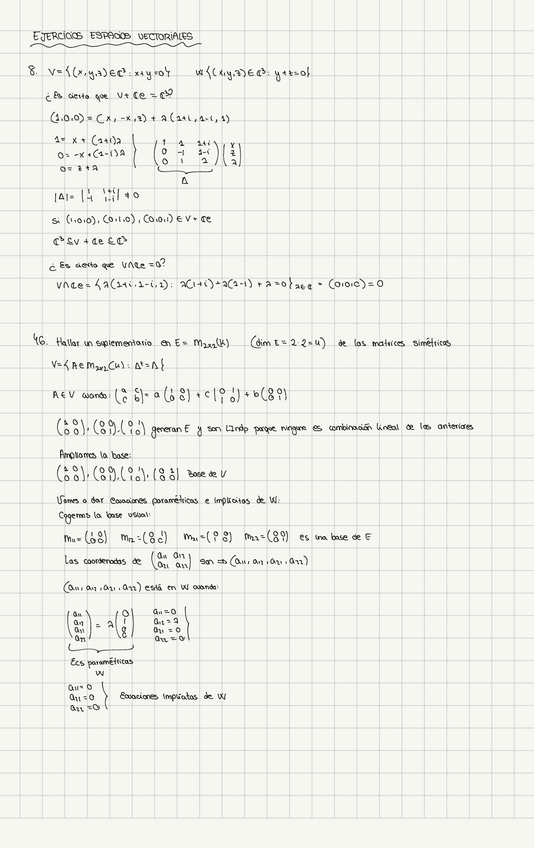 EJERCICIOS ESPACIOS VECTORIALES
8. V = {(x,y,z) ∈ ℂ³ : x+y=0} W {(x,y,z) ∈ ℂ³ : y+z=0}
¿Es cierto que V + ℂe = ℂ³?
(1,0,0) = (x, -x, z) + λ(1+i, 1-i, 1)
1 = x + (1+i)λ
0 = -x + (1-i)λ
0 = z + λ
( 1 1 1+i ) ( x )
( 0 -1 1-i ) ( z )
( 0 1 1 ) ( λ )
A
|A| = | 1 1+i | ≠ 0
| -1 1-i |
Si (1,0,0), (0,1,0), (0,0,1) ∈ V + ℂe
ℂ³ ⊆ V + ℂe ⊆ ℂ³
¿Es cierto que V∩ℂe = 0?
V∩ℂe = {λ(1+i, 1-i, 1) : λ(1+i) + λ(1-i) + λ = 0} λ∈ℂ = (0,0,0) = 0
46. Hallar un suplementario en E = M₂ₓ₂(K) (dim E = 2·2 = 4) de las matrices simétricas
V = {A ∈ M₂ₓ₂(K) : Aᵗ = A}
A ∈ V cuando: (a c; c b) = a (1 0; 0 0) + c (0 1; 1 0) + b (0 0; 0 1)
(1 0; 0 0), (0 0; 0 1), (0 1; 1 0) generan E y son L.Indp porque ninguno es combinación lineal de los anteriores
Ampliamos la base:
(1 0; 0 0), (0 0; 0 1), (0 1; 1 0), (0 1; 0 0) Base de V
Vamos a dar ecuaciones paramétricas e implícitas de W:
Cogemos la base usual:
M₁₁ = (1 0; 0 0) M₁₂ = (0 1; 0 0) M₂₁ = (0 0; 1 0) M₂₂ = (0 0; 0 1) es una base de E
Las coordenadas de (a₁₁ a₁₂; a₂₁ a₂₂) son ⇒ (a₁₁, a₁₂, a₂₁, a₂₂)
(a₁₁, a₁₂, a₂₁, a₂₂) está en W cuando:
(a₁₁; a₁₂; a₂₁; a₂₂) = λ (0; 1; 0; 0)
a₁₁ = 0
a₁₂ = λ
a₂₁ = 0
a₂₂ = 0
Ecs paramétricas
W
a₁₁ = 0
a₂₁ = 0
a₂₂ = 0
Ecuaciones implícitas de W